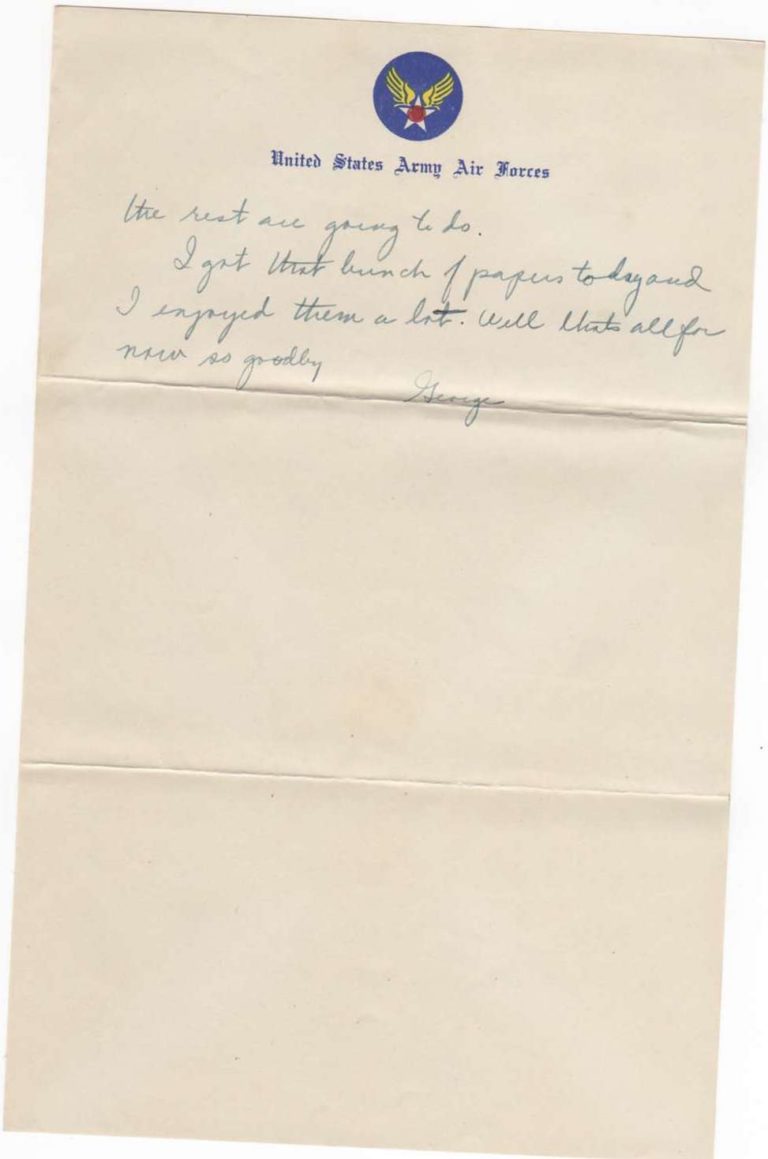 United States Army Air Forces
the rest are going to do.
I got that bunch of papers today and
I enjoyed them a lot. Well thats all for
now so goodby
George